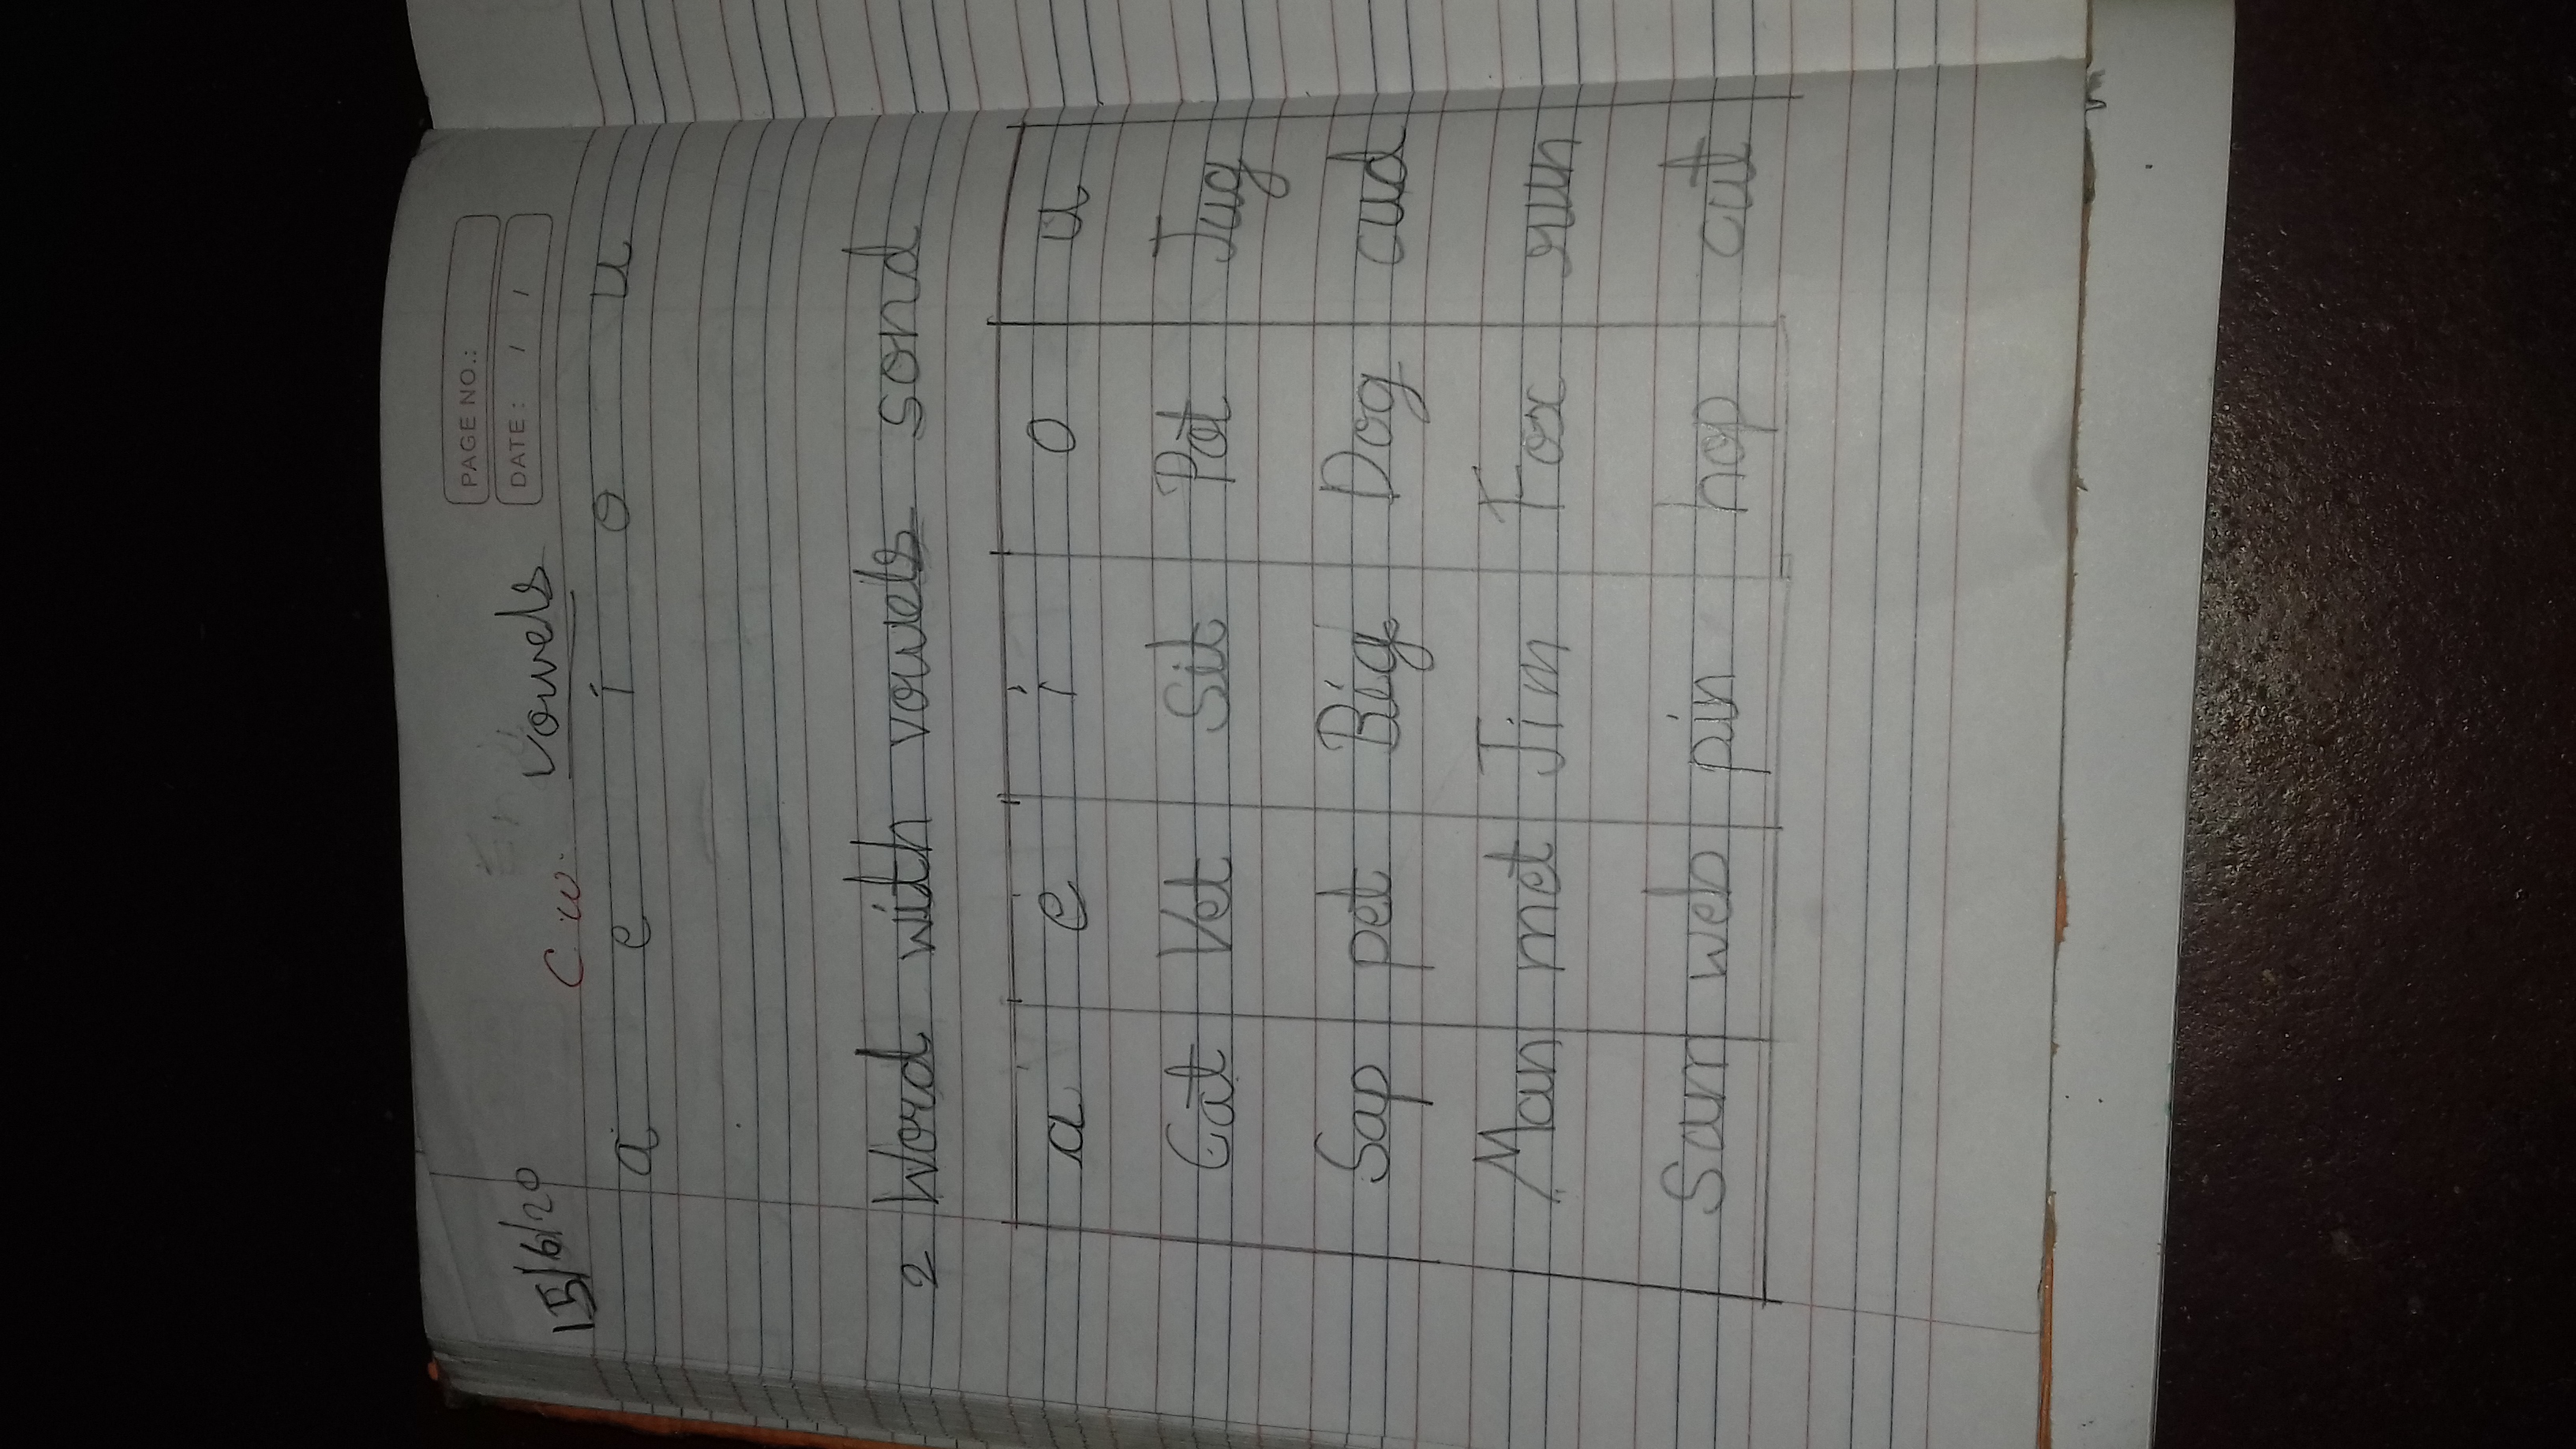 PAGE NO.:
DATE: / /
15/6/20 C.W. Vowels
a e i o u
2 Word with vowels sond
a e i o u
Cat Vet Sit Pot Jug
Sap pet Big Dog cud
Man met Jim Fox run
Sam web pin hop cut